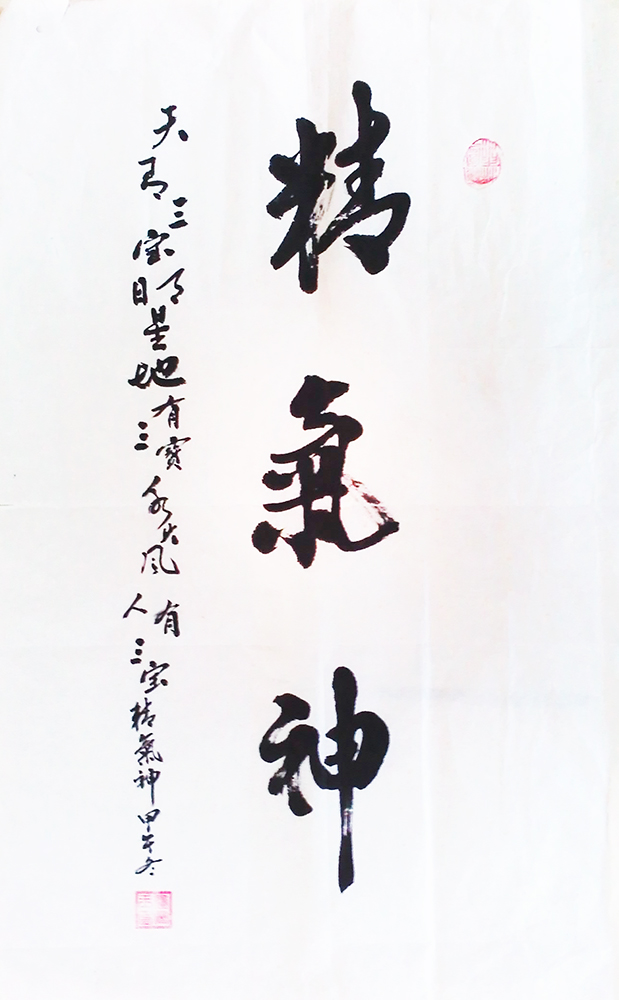 精氣神
天有三宝日月星地有三寳水火風人有三宝精氣神甲午冬